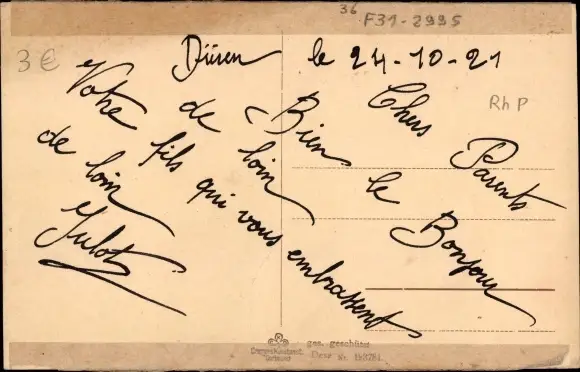 36
F31-2995
3 €
Düren le 24-10-21
Rh P
Chers Parents
Bien le Bonjour
de loin
Votre fils qui vous embrassent
de loin
Julot
ges. geschützt